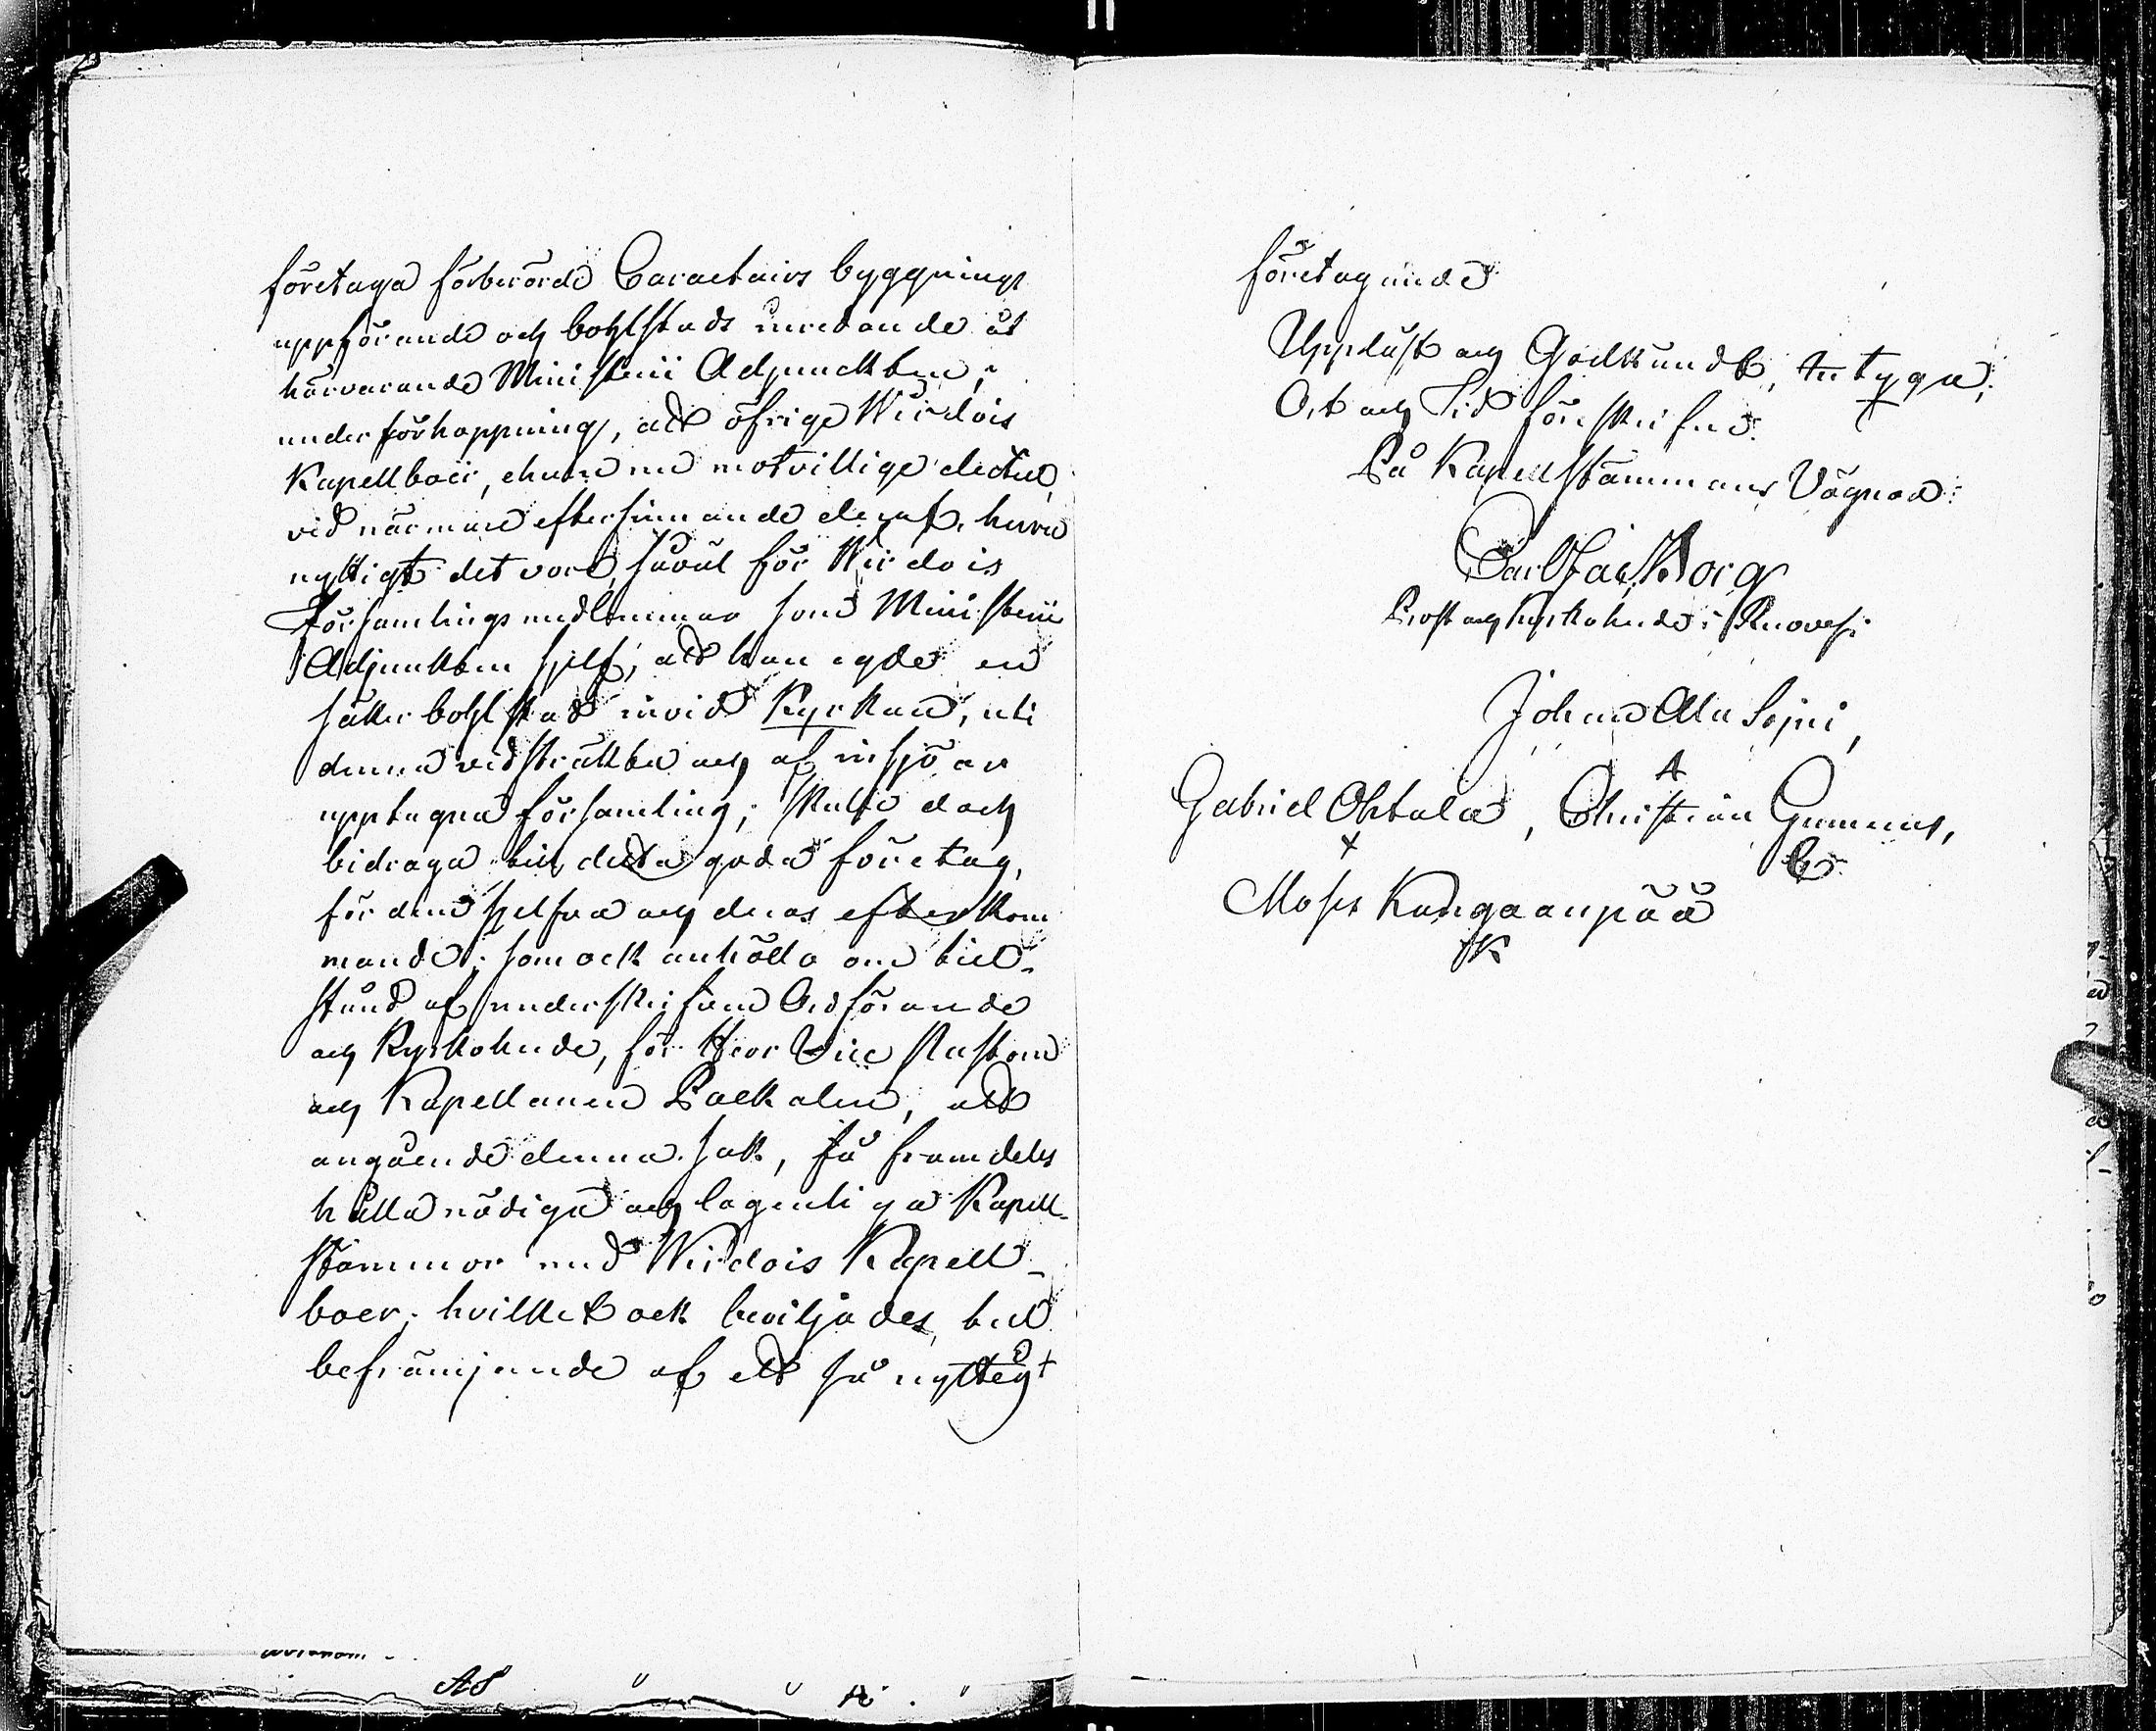 företaga förberörde Caractairs byggnings
uppförande och bohlstads inredande åt
härvarande Ministerii Adjunckten;
under förhoppning, att öfrige Wirdois
Kapellboer, ehuru nu motvillige dertill,
vid närmare eftersinnande deraf, huru
nyttigt det vore, såväl för Wirdois
Församlings medlemmar som Ministerii
Adjunkten sjelf, att han egde en
säker bohlstad invid Kyrkan, uti
denna vidsträkta och af insjöar
upptagna församling; skulle doch
bidraga till detta goda företag,
för dem sjelfva och deras efterkom
mande; som ock anhölla om till-
stånd af underskrifven Ordförande
och Kyrkoherde, för Herr Vice Pastorn
och Kapellanen Packalen, att
angående denna sak, få framdeles
hålla nödiga och lagenliga Kapell-
stämmor med Wirdois Kapell-
boer; hvilket ock beviljades, till
befrämjande af ett så nyttigt
företagande.
Uppläst och Godkändt, intyga;
Ort och Tid föreskrifne.
På Kapellstämmans Vägnar:
Carl Jac. Borg
Prost och Kyrkoherde i Ruovesi
Johan Ala Sojni,
A
Gabriel Ohtala, Christian Gummerus,
x
Moses Kangaanpää
K